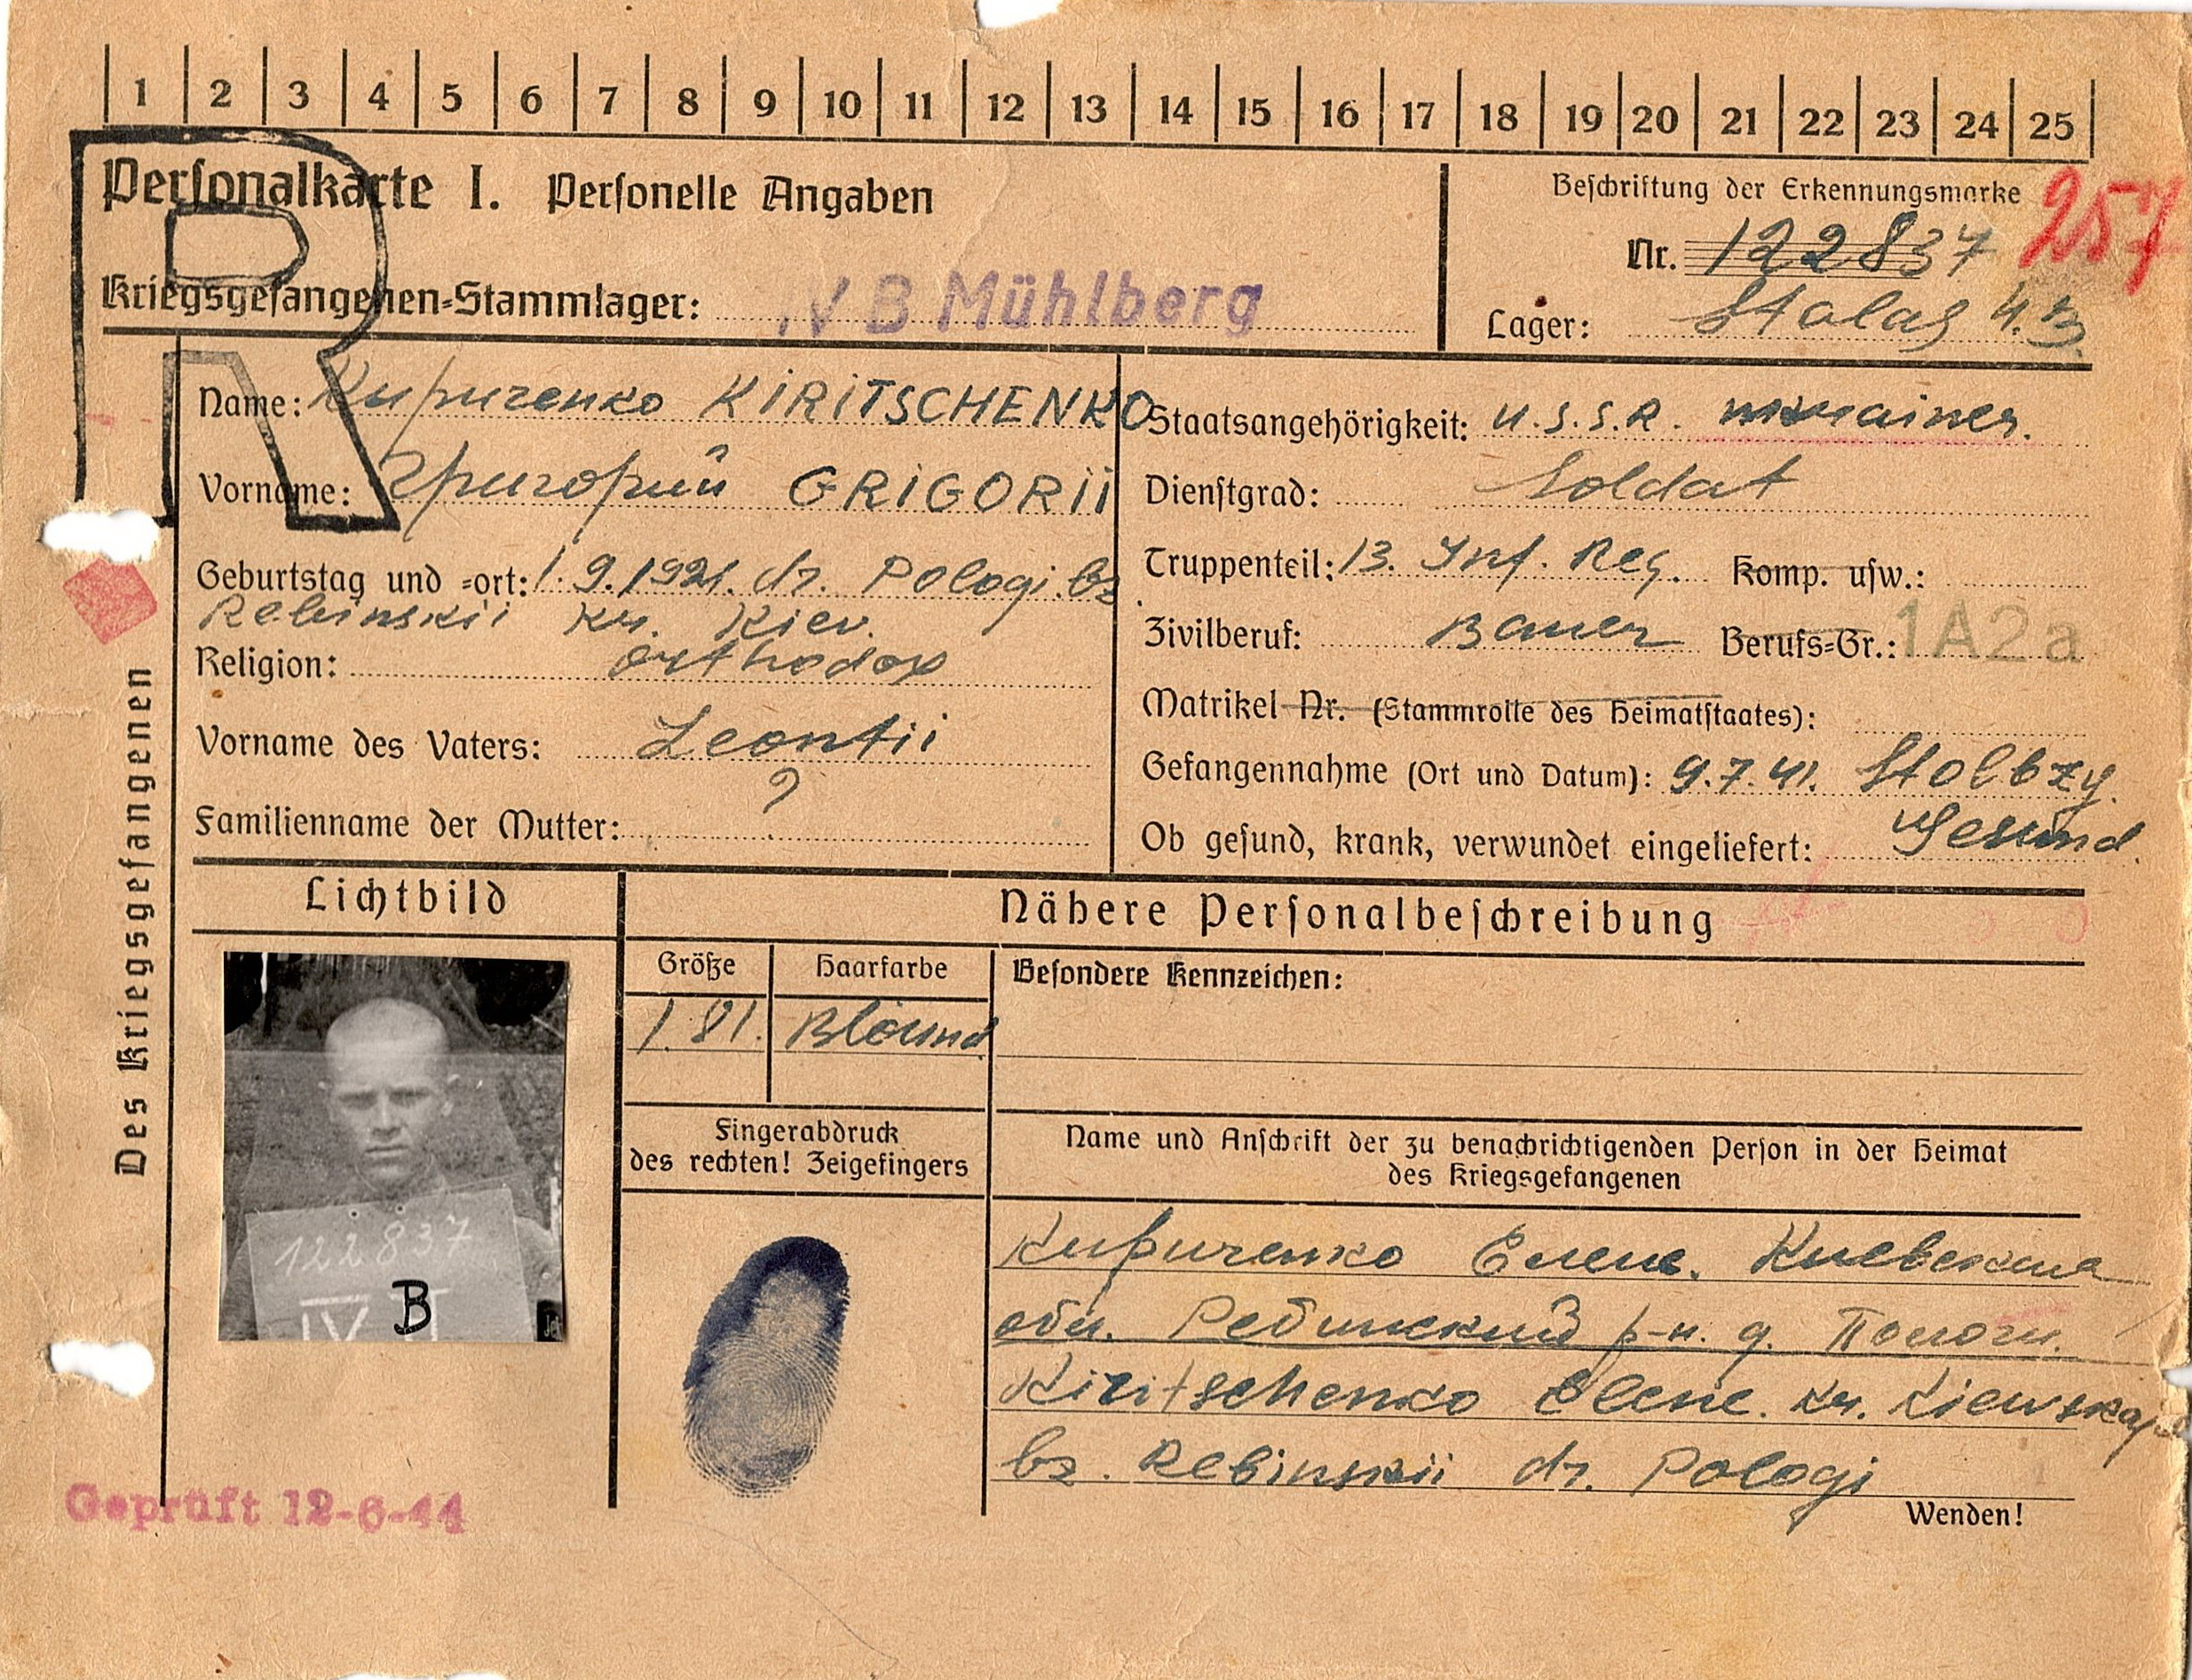 1 2 3 4 5 6 7 8 9 10 11 12 13 14 15 16 17 18 19 20 21 22 23 24 25
R
Personalkarte I. Personelle Angaben
Kriegsgefangenen-Stammlager: IV B Mühlberg
Beschriftung der Erkennungsmarke
257
Nr. 122837
Lager: Stalag 4.B.
Des Kriegsgefangenen
Name: Кириченко KIRITSCHENKO
Vorname: Григорий GRIGORII
Geburtstag und =ort: 1.9.1921. dr. Pologi. bz
Rebinskii kr. Kiev.
Religion: orthodox
Vorname des Vaters: Leontii
Familienname der Mutter: ?
Staatsangehörigkeit: U.S.S.R. ukrainer.
Dienstgrad: Soldat
Truppenteil: 13. Inf. Reg. Komp. usw.:
Zivilberuf: Bauer Berufs=Gr.: 1A2a
Matrikel Nr. (Stammrolle des Heimatstaates):
Gefangennahme (Ort und Datum): 9.7.41. Stolbzy.
Ob gesund, krank, verwundet eingeliefert: Gesund.
Lichtbild
122837
IV B
Nähere Personalbeschreibung
Größe
1.81.
Haarfarbe
Blound
Besondere Kennzeichen:
Fingerabdruck
des rechten! Zeigefingers
Name und Anschrift der zu benachrichtigenden Person in der Heimat
des Kriegsgefangenen
Кириченко Елене. Киевская
обл. Ребинский р-н. д. Пологи.
Kiritschenko Elene. kr. Kiewskaja
bz. Rebinskii dr. Pologi
Wenden!
Geprüft 12-6-44